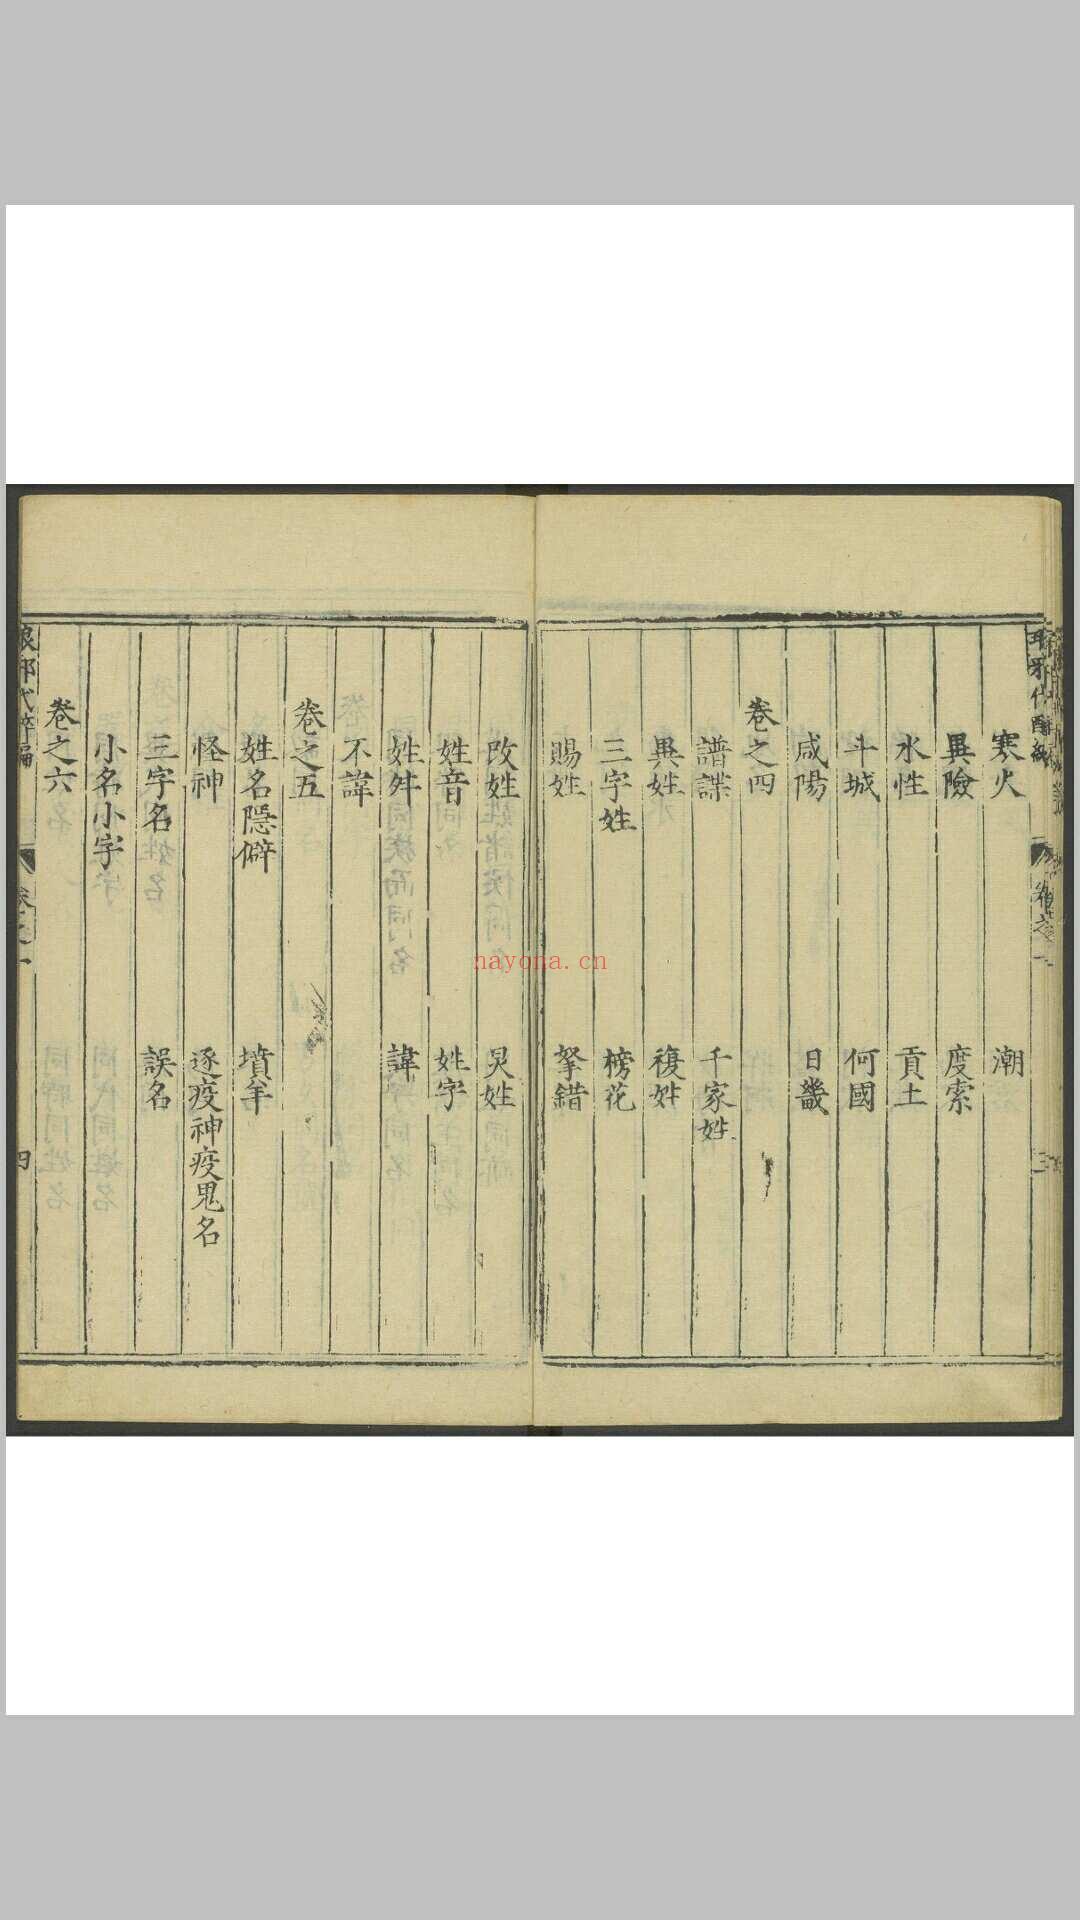 寒火 潮
異險 度索
水性 貢土
斗城 何國
咸陽 日畿
卷之四
譜諜 千家姓
異姓 複姓
三字姓 榜花
賜姓 拏錯
改姓 炅姓
姓音 姓字
姓舛 諱
不諱
卷之五
姓名隱僻 墳羊
怪神 逐疫神疫鬼名
三字名 誤名
小名小字
卷之六
琅邪代醉編 卷之一 四
nayona.cn